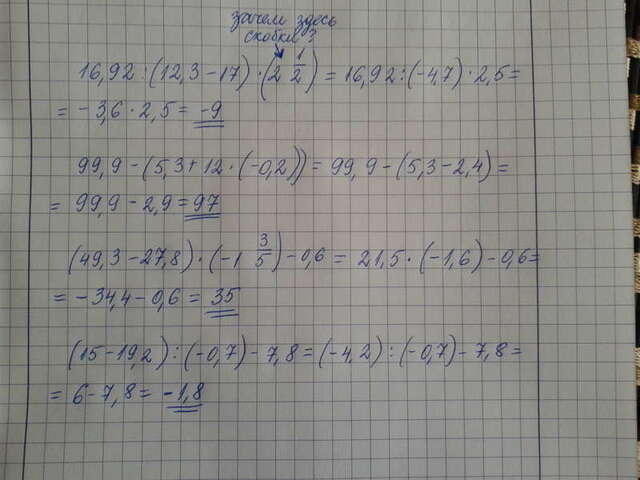 зачем здесь
скобки?
16,92 : (12,3 - 17) · (2 1/2) = 16,92 : (-4,7) · 2,5 =
= - 3,6 · 2,5 = -9
99,9 - (5,3 + 12 · (-0,2)) = 99,9 - (5,3 - 2,4) =
= 99,9 - 2,9 = 97
(49,3 - 27,8) · (-1 3/5) - 0,6 = 21,5 · (-1,6) - 0,6 =
= - 34,4 - 0,6 = 35
(15 - 19,2) : (-0,7) - 7,8 = (-4,2) : (-0,7) - 7,8 =
= 6 - 7,8 = -1,8